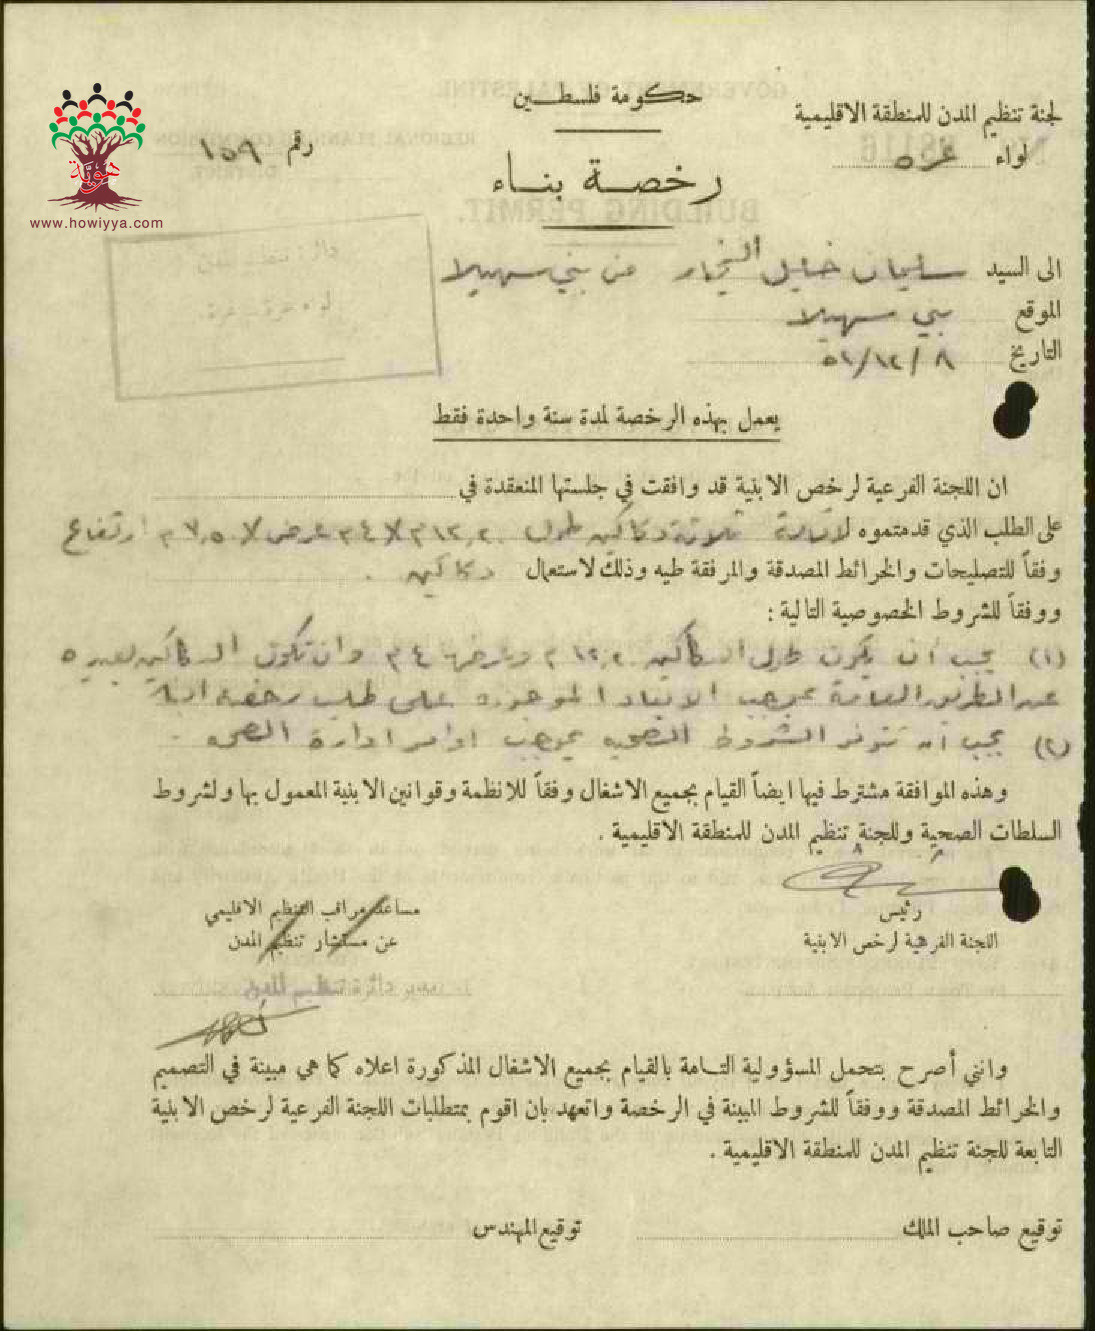 حكومة فلسطين
لجنة تنظيم المدن للمنطقة الاقليمية
لواء غزه
رقم ١٥٩
رخصة بناء
هوية
www.howiyya.com
الى السيد سليمان خليل النجار من بني سهيلا
الموقع بني سهيلا
التاريخ ٨/١٢/٥١
يعمل بهذه الرخصة لمدة سنة واحدة فقط
ان اللجنة الفرعية لرخص الابنية قد وافقت في جلستها المنعقدة في
على الطلب الذي قدمتموه ثلاثة دكاكين طول عرض ارتفاع
وفقاً للتصليحات والخرائط المصدقة والمرفقة طيه وذلك لاستعمال دكاكين .
ووفقاً للشروط الخصوصية التالية :
(١) يجب ان يكون طول الدكاكين وان تكون الدكاكين بعيده
عن الطريق العامة بموجب الابعاد الموجوده على طلب رخصة البناء
(٢) يجب ان تتوفر الشروط الصحيه بموجب اوامر ادارة الصحه .
وهذه الموافقة مشترط فيها ايضاً القيام بجميع الاشغال وفقاً للانظمة وقوانين الابنية المعمول بها ولشروط
السلطات الصحية وللجنة تنظيم المدن للمنطقة الاقليمية .
رئيس
اللجنة الفرعية لرخص الابنية
مساعد مراقب التنظيم الاقليمي
عن مستشار تنظيم المدن
مدير دائرة تنظيم المدن
وانني أصرح بتحمل المسؤولية التامة بالقيام بجميع الاشغال المذكورة اعلاه كما هي مبينة في التصميم
والخرائط المصدقة ووفقاً للشروط المبينة في الرخصة واتعهد بان اقوم بمتطلبات اللجنة الفرعية لرخص الابنية
التابعة للجنة تنظيم المدن للمنطقة الاقليمية .
توقيع صاحب الملك
توقيع المهندس